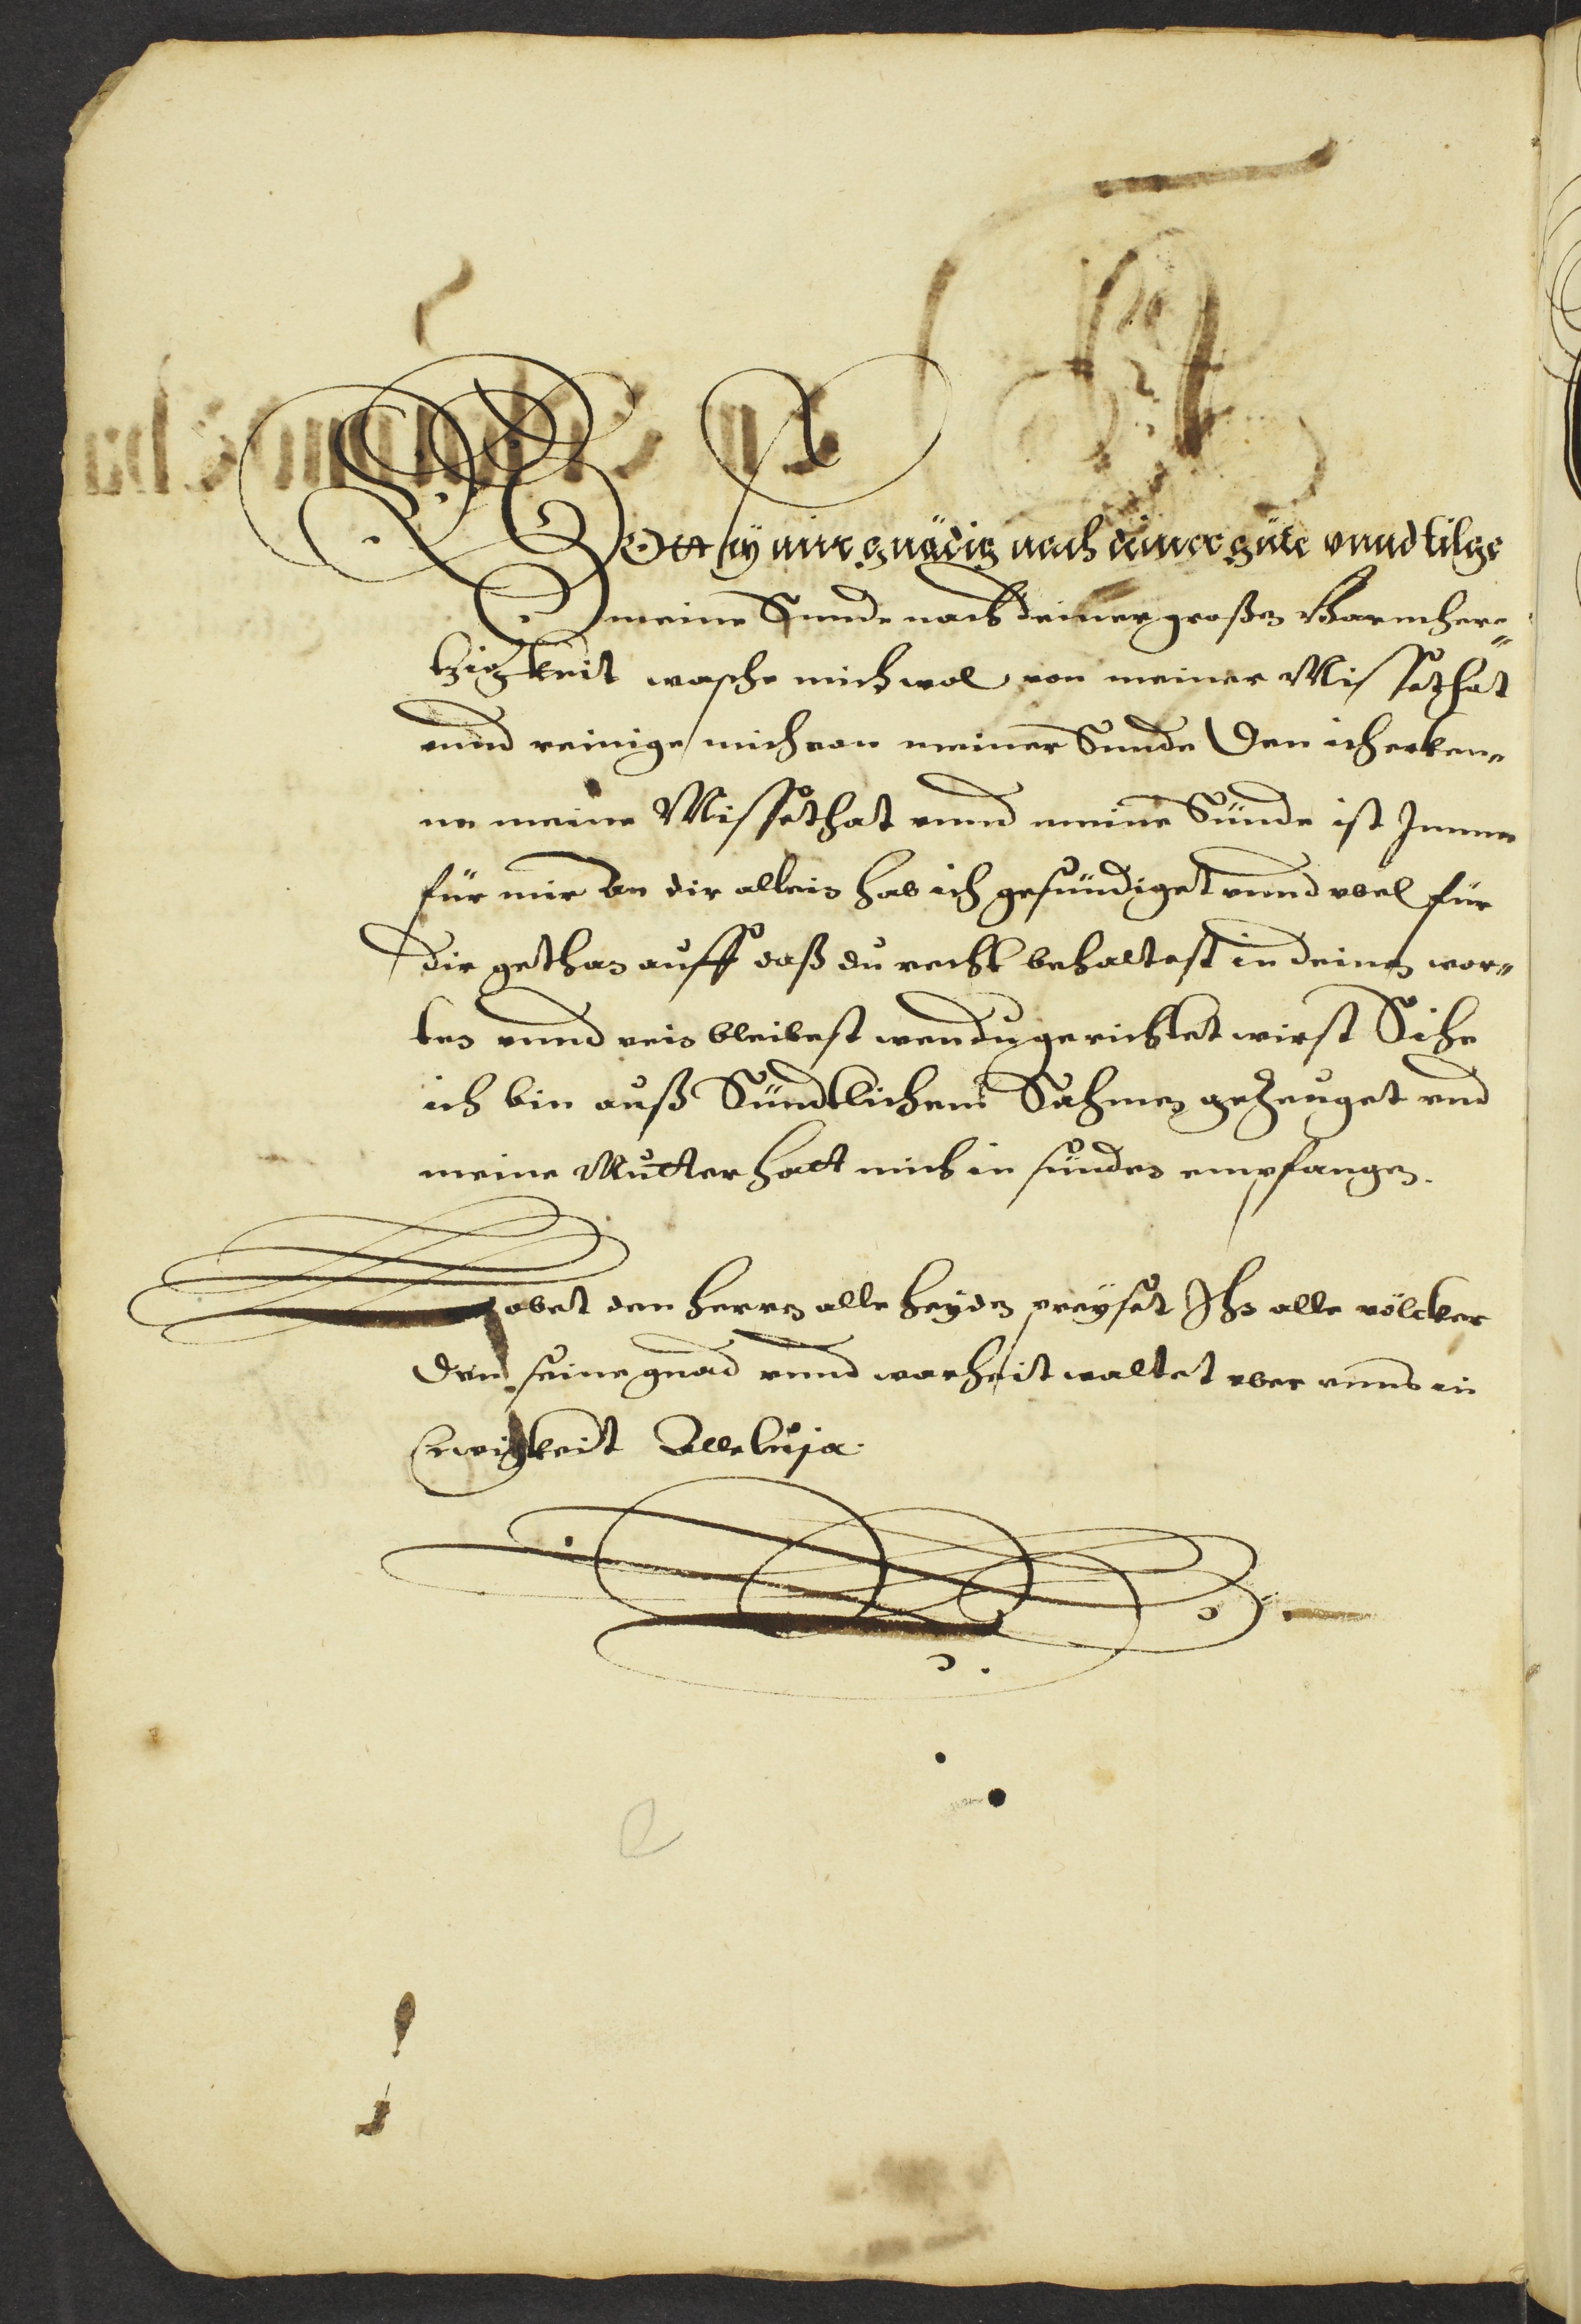 GOtt sey mir gnädig nach deiner güte vnnd tilge
meine Sunde nach deiner großen Barmher„
tzigkeit wasche mich wol von meiner Missethat
vnnd reinige mich von meiner Sunde Den ich erken„
ne meine Missethat vnnd meine Sünde ist Immer
für mir An dir allein hab ich gesündiget vnnd vbel für
dir gethan auff daß du recht behaltest in deinen wor„
ten vnnd rein bleibest wen du gerichtet wirst Sihe
ich bin auß Sündtlichem Sahmen geZeuget vnd
meine Mutter hatt mich in sünden empfangen.
Lobet den Herren alle Heyden preyset Ihn alle völcker
Den seine gnad vnnd warheit waltet vber vnns in
Ewigkeit Alleluja.